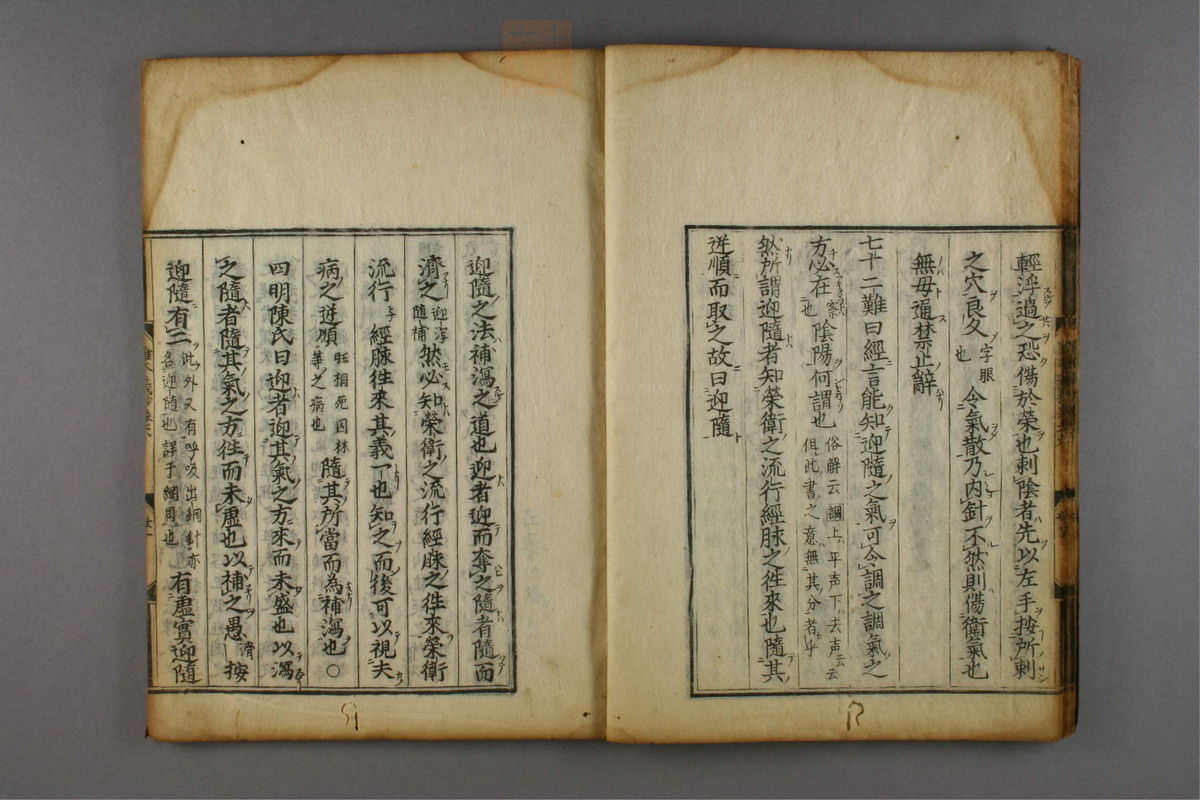 輕浮過之恐傷於榮也刺陰者先以左手按所刺
之穴良久字眼也令氣散乃内針不然則傷衛氣也
無毋通禁止辭
七十二難曰經言能知迎隨之氣可令調之調氣之
方必在察也陰陽何謂也俗解云調上平声下去声云云但此書之意無其分者乎
然所謂迎隨者知榮衛之流行經脉之徃來也隨其
逆順而取之故曰迎隨
迎隨之法補瀉之道也迎者迎而奪之隨者隨而
濟之迎瀉隨補然必知榮衛之流行經脉之徃來榮衛
流行與經脉徃來其義一也知之而後可以視夫
病之逆順旺相死囚休等之病也隨其所當而為補瀉也○
四明陳氏曰迎者迎其氣之方來而未盛也以瀉
之隨者隨其氣之方徃而未虚也以補之愚滑按
迎隨有二此外又有呼吸出納針亦名迎隨也詳于綱目也有虚實迎隨